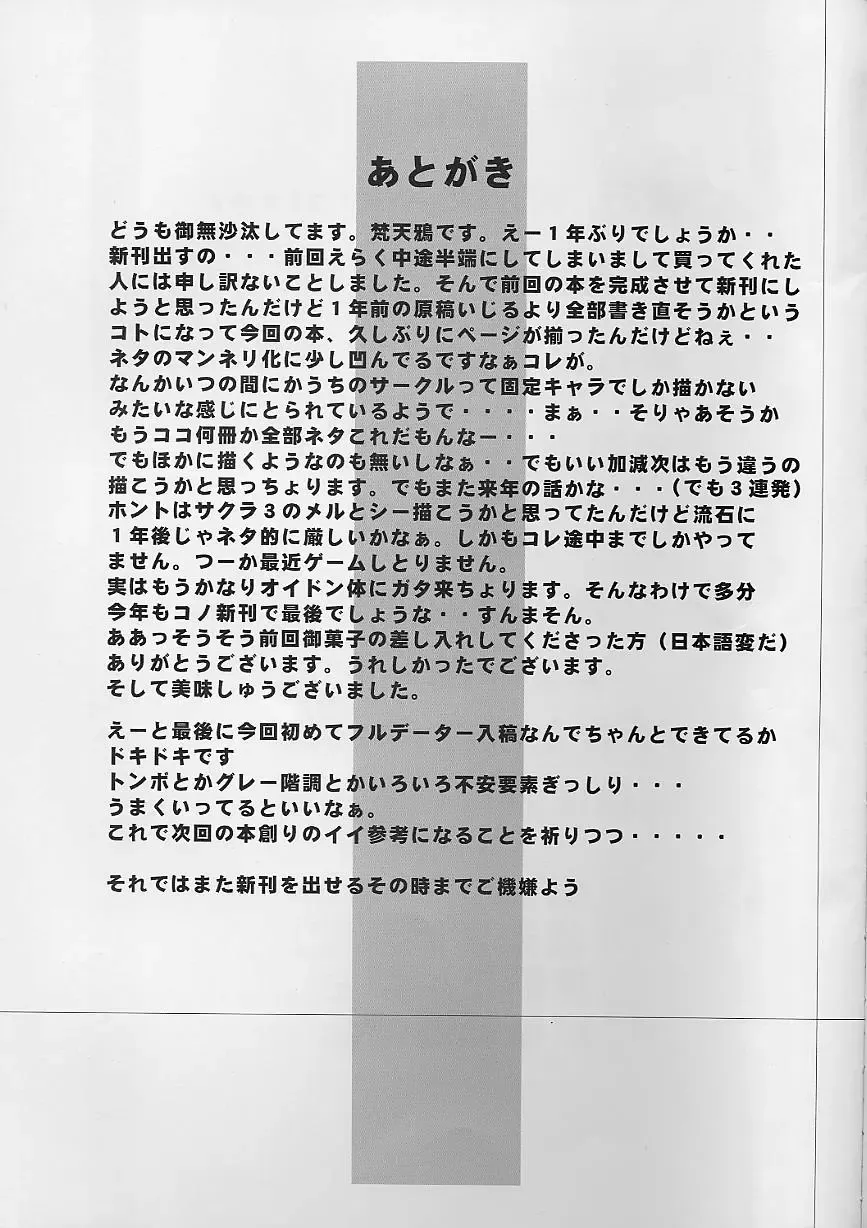 あとがき
どうも御無沙汰してます。梵天鴉です。えー１年ぶりでしょうか・・
新刊出すの・・・前回えらく中途半端にしてしまいまして買ってくれた
人には申し訳ないことしました。そんで前回の本を完成させて新刊にし
ようと思ったんだけど１年前の原稿いじるより全部書き直そうかという
コトになって今回の本、久しぶりにページが揃ったんだけどねぇ・・
ネタのマンネリ化に少し凹んでるですなぁコレが。
なんかいつの間にかうちのサークルって固定キャラでしか描かない
みたいな感じにとられているようで・・・・まぁ・・そりゃあそうか
もうココ何冊か全部ネタこれだもんなー・・・
でもほかに描くようなのも無いしなぁ・・でもいい加減次はもう違うの
描こうかと思っちょります。でもまた来年の話かな・・・（でも３連発）
ホントはサクラ３のメルとシー描こうかと思ってたんだけど流石に
１年後じゃネタ的に厳しいかなぁ。しかもコレ途中までしかやって
ません。つーか最近ゲームしとりません。
実はもうかなりオイドン体にガタ来ちょります。そんなわけで多分
今年もコノ新刊で最後でしょうな・・すんまそん。
ああっそうそう前回御菓子の差し入れしてくださった方（日本語変だ）
ありがとうございます。うれしかったでございます。
そして美味しゅうございました。
えーと最後に今回初めてフルデーター入稿なんでちゃんとできてるか
ドキドキです
トンボとかグレー階調とかいろいろ不安要素ぎっしり・・・
うまくいってるといいなぁ。
これで次回の本創りのイイ参考になることを祈りつつ・・・・・
それではまた新刊を出せるその時までご機嫌よう